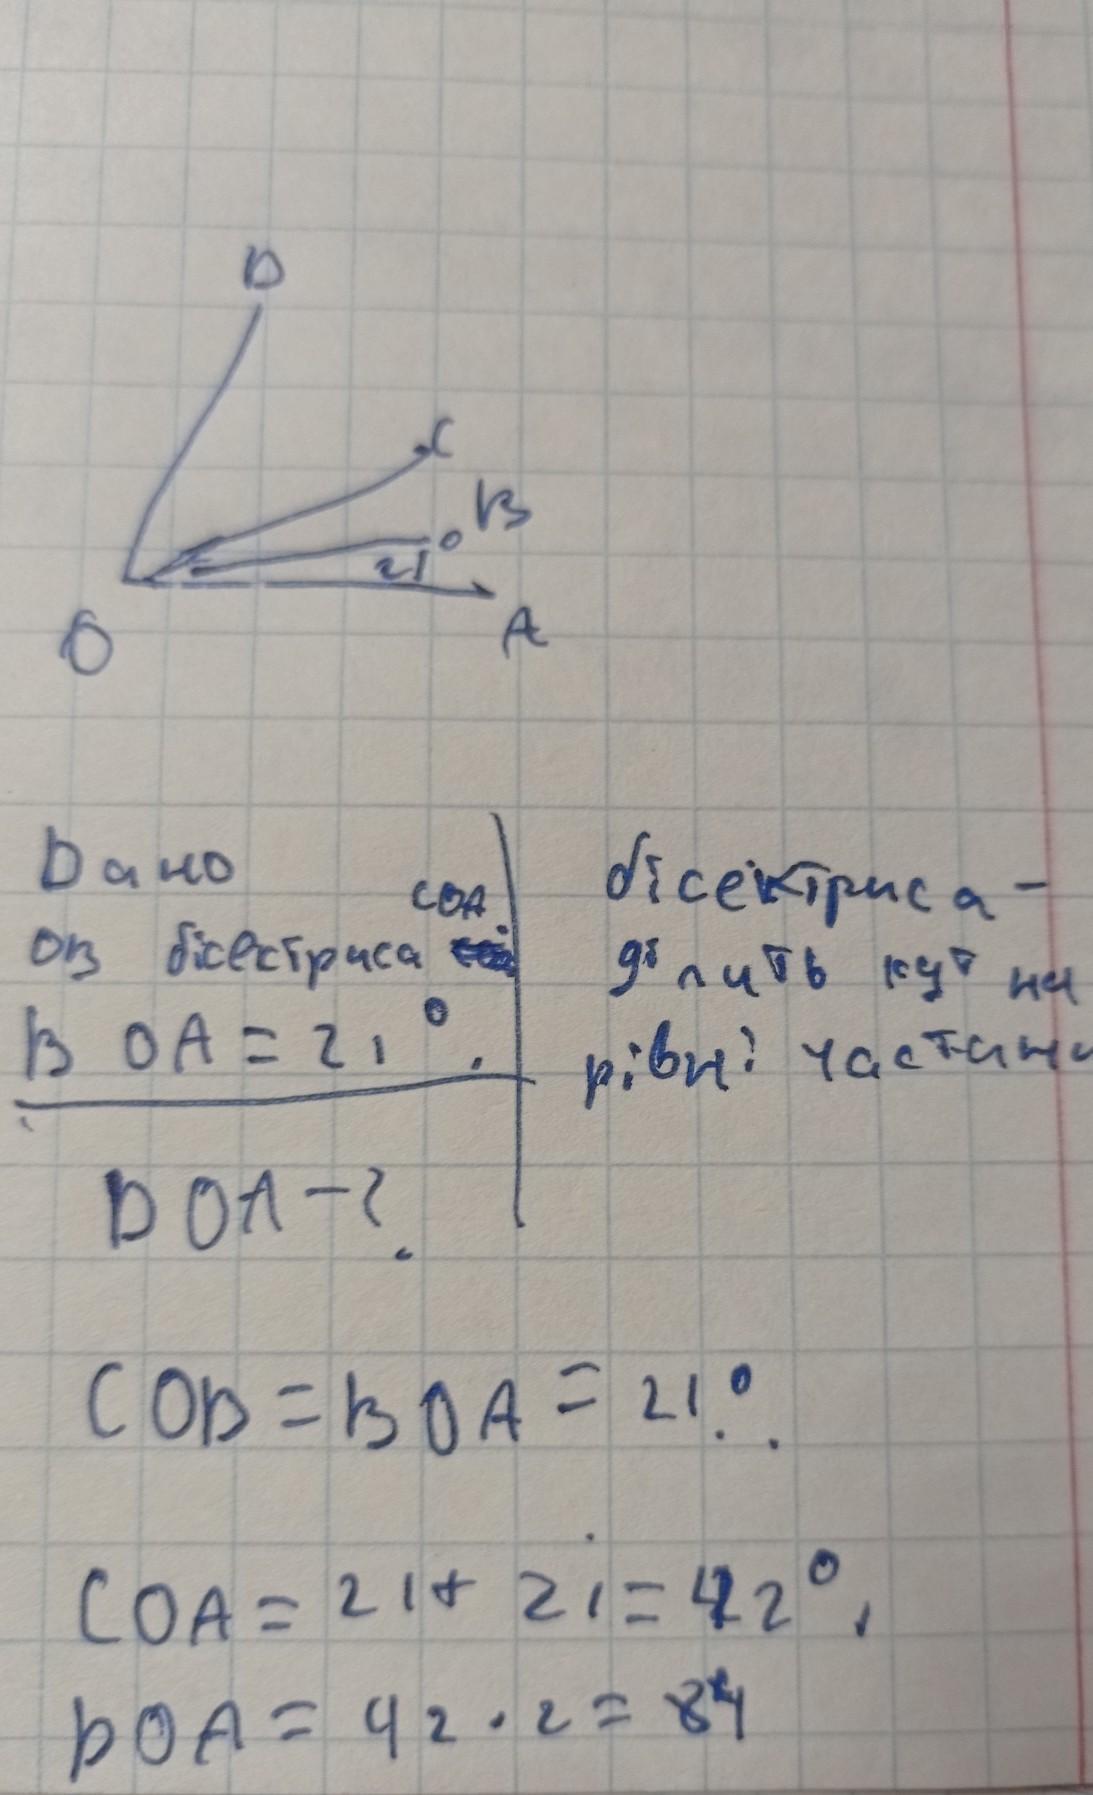 D
C
B
21
A
O
Дано
COA
OB бісестриса
B OA = 21°.
DOA - ?
бісектриса -
ділить кут на
рівні частини
COB = BOA = 21°.
COA = 21 + 21 = 42°.
DOA = 42 · 2 = 84